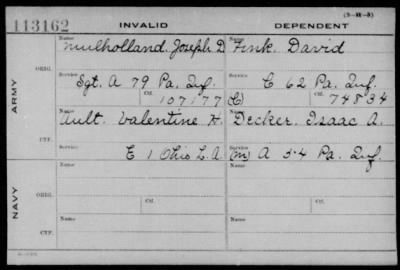 (3-H-8)
113162 INVALID DEPENDENT
Name Name
Mulholland. Joseph D Fink. David
ORIG.
Service Service
Sgt. A 79 Pa. Inf. C 62 Pa. Inf.
Ctf. Ctf.
107177 (C) 74834
ARMY
Name Name
Ault. Valentine H. Decker. Isaac A.
CTF.
Service Service
E 1 Ohio L. A. (M) A 54 Pa. Inf.
Name Name
ORIG.
Service Ctf. Service Ctf.
NAVY
Name Name
CTF.
Service Service